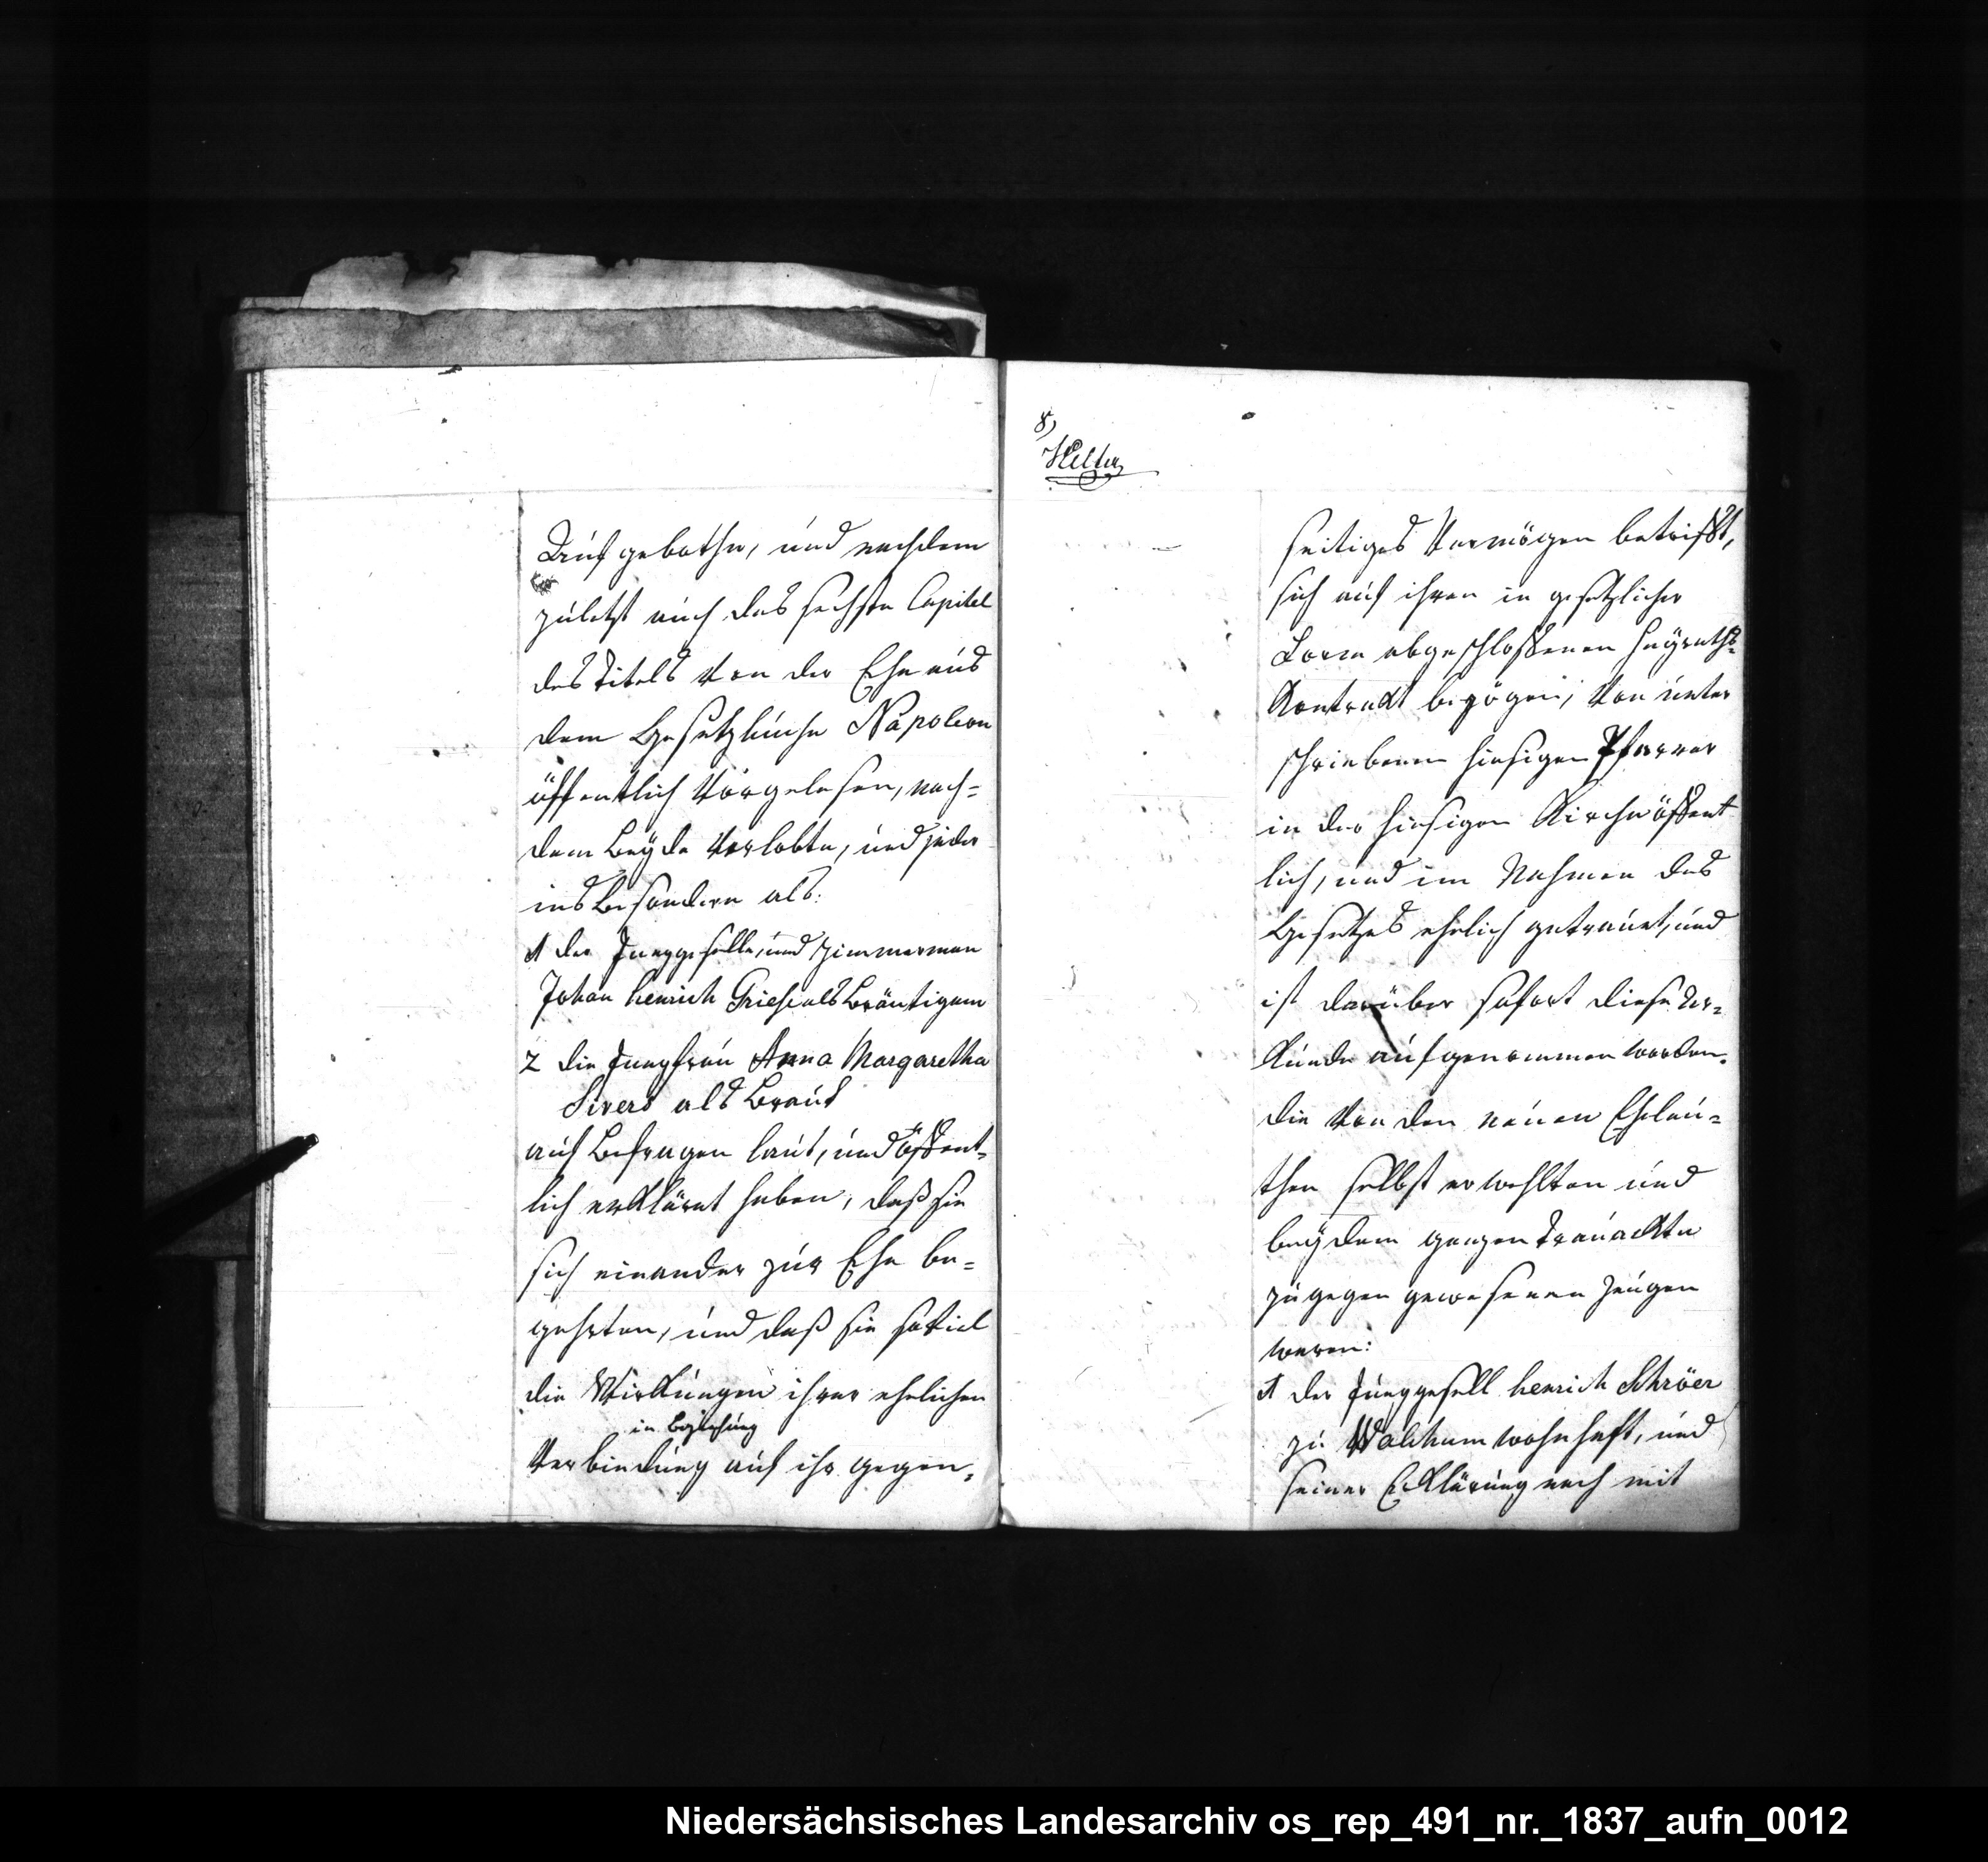 Aufgebothe, und nachdem
zuletzt auch das sechste Capitel
des Titels von der Ehe aus
dem Gesetzbuche Napoleon
öffentlich vorgelesen, nach=
dem beyde Verlobte, und jeder
ins besondere als:
1 der Junggeselle, und Zimmerman
Johan henrich Griese als Bräutigam
2 die Jungfrau Anna Margaretha
Sivers als Braut
auf Befragen laut, und öffent=
lich erklärt haben, daß sie
sich einander zur Ehe be=
gehrten, und daß sie soviel
die Wirkungen ihrer ehelichen
in Beziehung
Verbindung auf ihr gegen=
8)
seitiges Vermögen betrifft,
sich auf ihren in gesetzlicher
Form abgeschloßenen Heyraths=
Kontrakt bezögen, von unter
schriebenen hiesigen Pfarrer
in der hiesigen Kirche öffent
lich, und im Nahmen des
Gesetzes ehelich getrauet, und
ist darüber sofort diese Ur=
kunde aufgenommen worden.
die von den neuen Eheleu=
then selbst erwehlten und
bey dem ganzen Trauackte
zugegen gewesenen Zeugen
waren:
1 der Junggesell henrich Schröer
zu Walchum wohnhaft, und
seiner Erklärung nach mit
Niedersächsisches Landesarchiv os_rep_491_nr._1837_aufn_0012